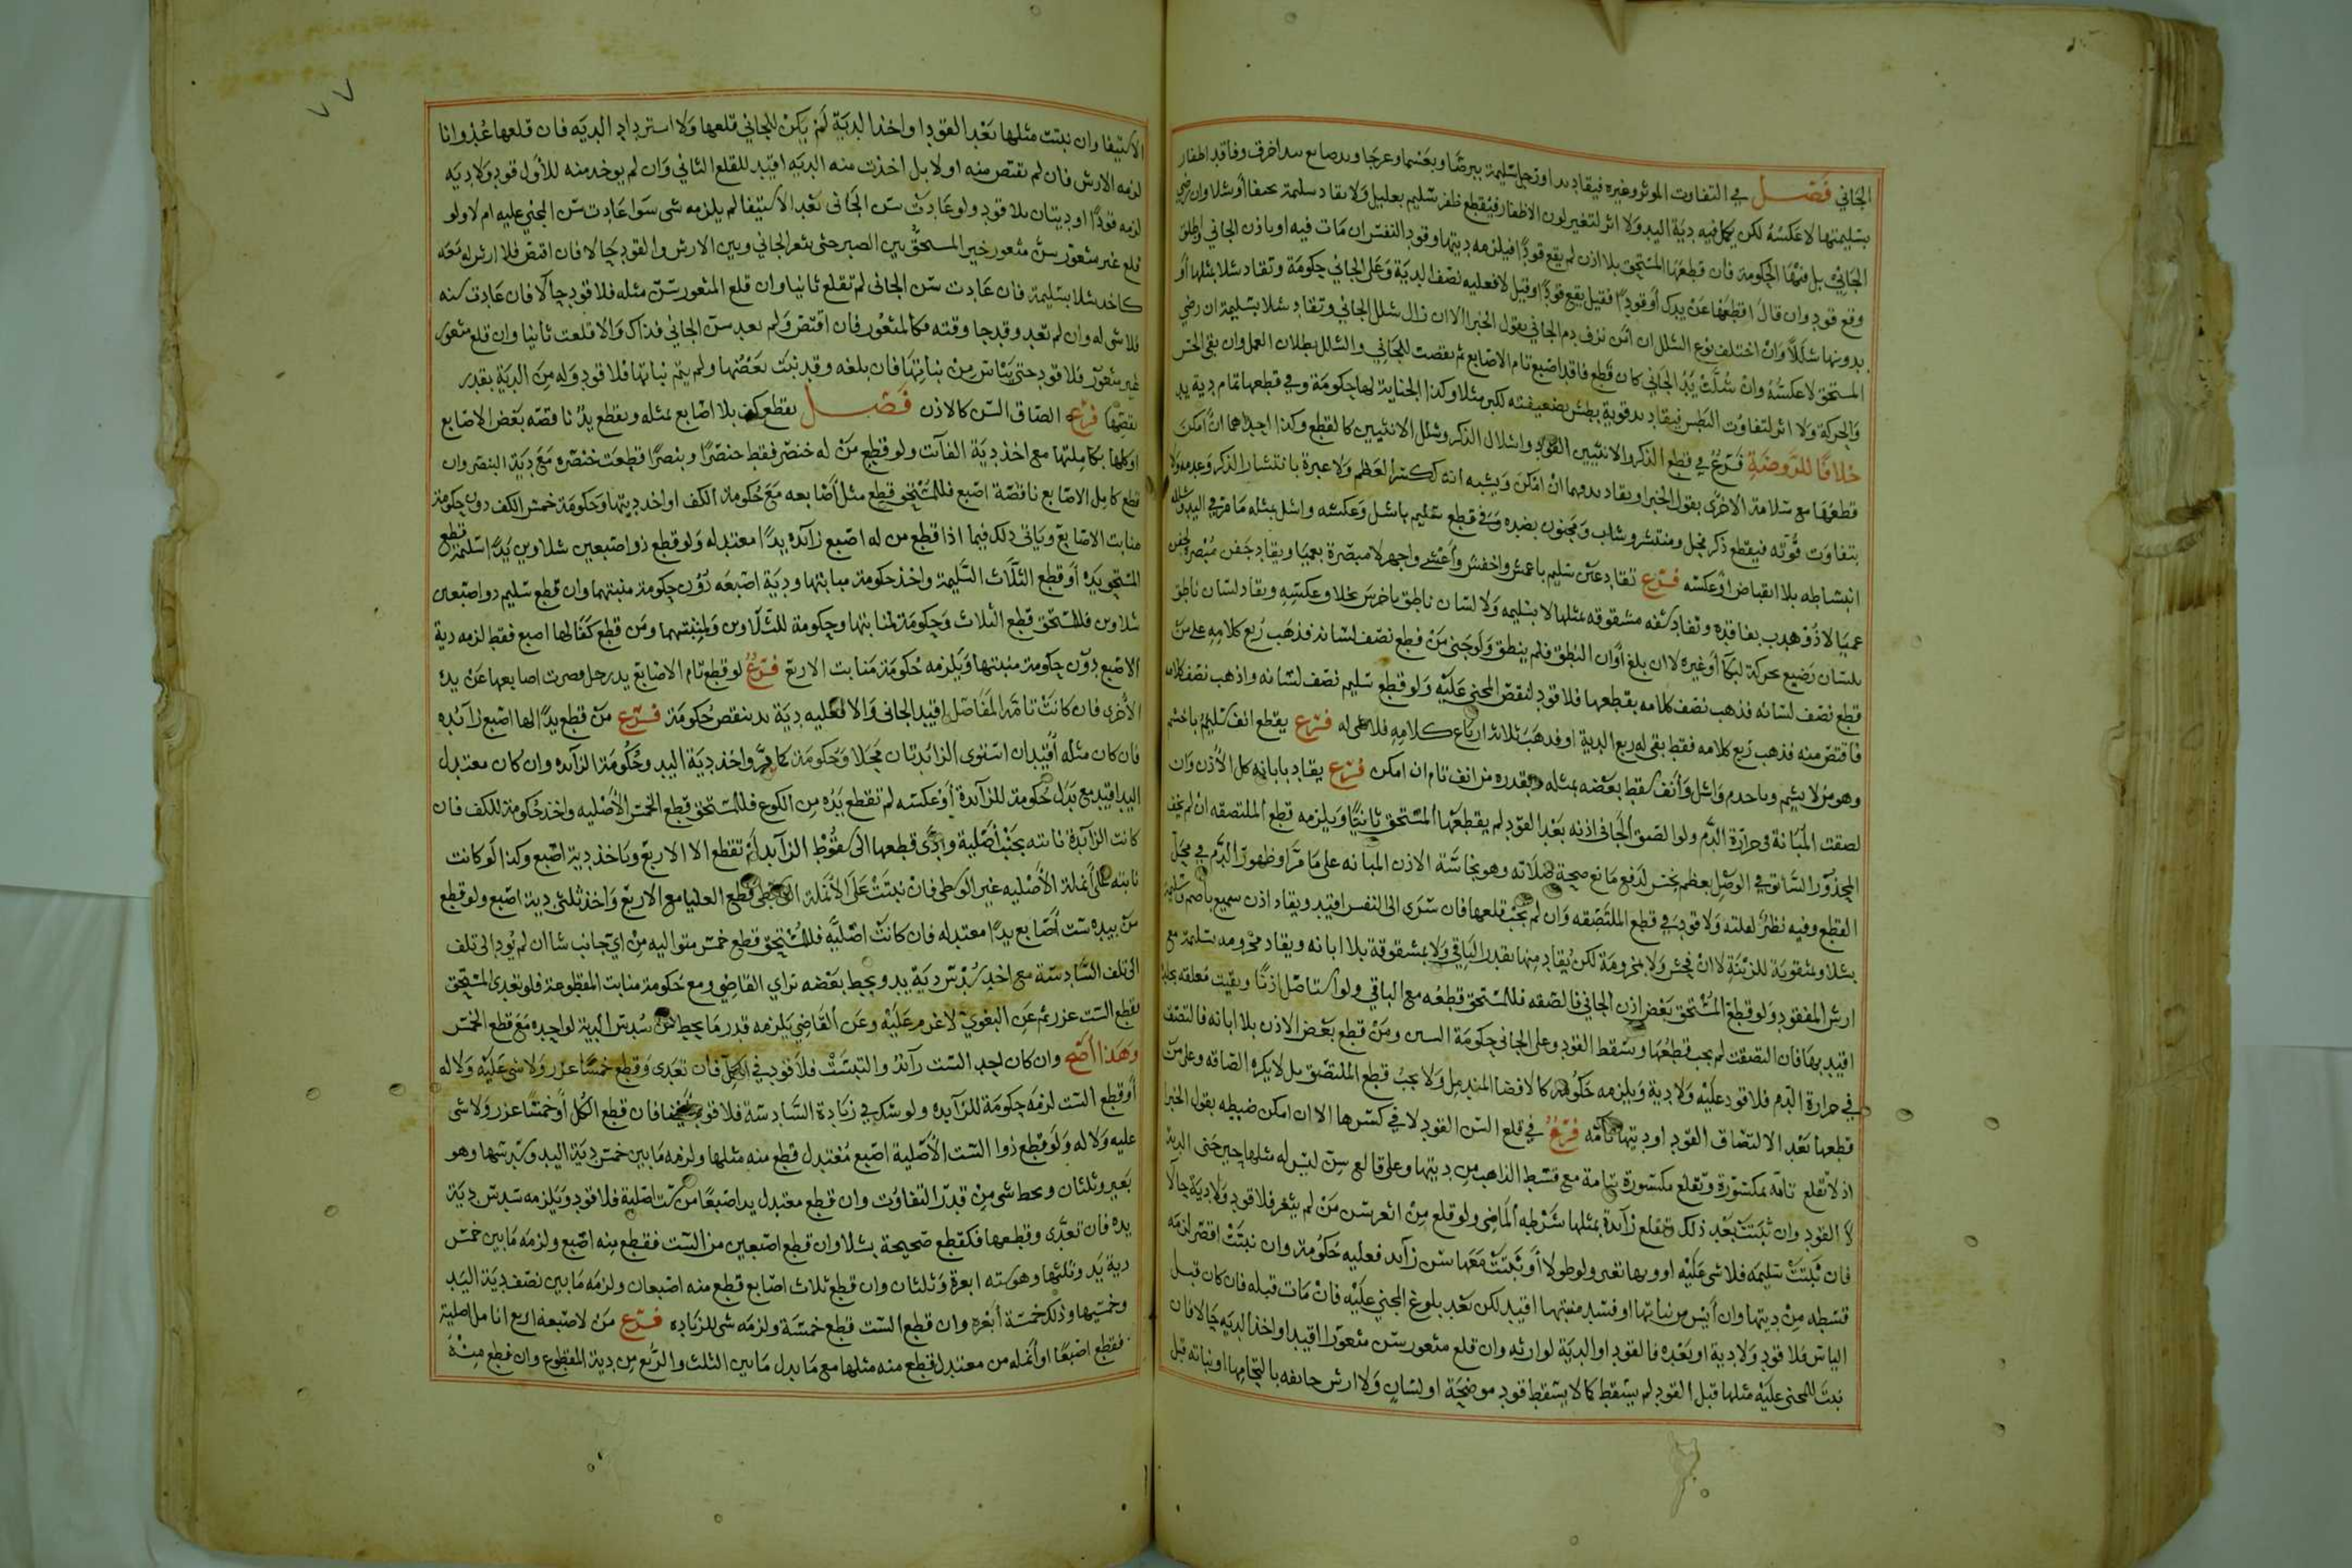 الجاني فصل في التفاوت الموثر وغيره فيقاد يد او رجل سليمة ببرصا وبعسما وعرجا ويد صانع بيد اخرق وفاقد اظفار
بسليمتها لا عكسه لكن يكمل فيه دية اليد ولا اثر لتغير لون الاظفار فيقطع ظفر سليم بعليل ولا يقاد سليمة بحيفا أو شلا وان رضي
الجاني بل فيها الحكومة فان قطعها المستحق بلا اذن لم يقع قودا فيلزمه ديتها وقود النفس ان مات فيه او باذن الجاني واطلق
وقع قود وان قال اقطعها عن يدك أو قودا فقيل يقع قودا وقيل لا فعليه نصف الدية وعلى الجاني حكومة وتقاد شلا بمثلها أو
بدونها شللا وان اختلف نوع الشلل ان أمن نزف دم الجاني بقول الخبرا الا ان زال شلل الجاني وتقاد شلا بسليمة ان رضي
المستحق لا عكسه وان شلت يد الجاني كان قطع فاقد اصبع تام الاصابع ثم نقصت للجاني والشلل بطلان العمل وان بقي الحس
والحركة ولا اثر لتفاوت البطش فيقاد يد قوية بطش بضعيفته لكبر مثلا وكذا الجناية لها حكومة وفي قطعها تمام دية يد
خلافا للروضة فرع في قطع الذكر والانثيين القود واشلال الذكر وشلل الانثيين كالقطع وكذا احداهما ان امكن
قطعها مع سلامة الاخرى بقول الخبرا ويقاد بدقهما ان امكن ويشبه انه ككسر العظم ولا عبرة بانتشار الذكر وعدمه ولا
بتفاوت قوته فيقطع ذكر فحل ومنتشر وشاب ومجنون بضده وفي قطع سليم باشل وعكسه واشل بمثله ما مر في اليد وشلله
انبساطه بلا انقباض او عكسه فرع تقاد عين سليم باعمش واخفش وأعشى واجهر لا مبصرة بعميا ويقاد جفن مبصرة بجفن
عميا لا ذو هدب بفاقده وتقاد شفه مشقوقه بمثلها لا بسليمه ولا لسان ناطق باخرس بخلاف عكسه ويقاد لسان ناطق
بلسان رضيع بحركة لبكا أو غيره لا ان بلغ أوان النطق فلم ينطق ولو جنى من قطع نصف لسانه فذهب ربع كلامه على من
قطع نصف لسانه فذهب نصف كلامه بقطعها فلا قود لنقص المجني عليه ولو قطع سليم نصف لسانه واذهب نصف كلامه
فاقتص منه فذهب ربع كلامه فقط بقي له ربع الدية او فذهب ثلاثة ارباع كلامه فلا شى له فرع يقطع انف سليم باخشم
وهو من لا يشم وباجدم واشل وأنف سقط بعضه بمثله وبقدره من انف تام ان امكن فرع يقاد بابانة كل الأذن وان
لصقت المبانة في حرارة الدم ولو الصق الجاني اذنه بعد القود لم يقطعها المستحق ثانيا ويلزمه قطع الملتصقه ان لم يخف
المحذور السابق في الوصل بعظم نجس لدفع مانع صحة صلاته وهو نجاسة الاذن المبانه على ما مر او ظهور الدم في محل
القطع وفيه نظر لقلته ولا قود في قطع الملتصقه وان لم يجب قلعها فان سرى الى النفس اقيد ويقاد اذن سميع باصم سليمة
بشلا ومثقوبة للزينة لا ان فحش ولا بمخرومة لكن يقاد منها بقدر الباقي ولا بمشقوقة بلا ابانه ويقاد مخرومه بسليمة مع
ارش المفقود ولو قطع المستحق بعض اذن الجاني فالصقه فللمستحق قطعه مع الباقي ولو استاصل اذنا وبقيت معلقه بجلدة
اقيد بها فان التصقت لم يجب قطعها وسقط القود وعلى الجاني حكومة ومن قطع بعض الاذن بلا ابانه فالتصق
في حرارة الدم فلا قود عليه ولا دية ويلزمه حكومة كالافضا المندمل ولا يجب قطع الملتصق بل لا يكره الصاقه وعلى من
قطعها بعد الالتصاق القود او ديتها تامه فرع في قلع السن القود لا في كسرها الا ان امكن ضبطه بقول الخبرا
اذ لا تقلع تامه بمكسورة وتقلع مكسورة بتامة مع قسط الذاهب من ديتها وعلى قالع سن ليس له مثلها حين جنى الدية
لا القود وان نبتت بعد ذلك وتقلع زائدة بمثلها بشرطه الماضي ولو قلع من اثغر سن من لم يثغر فلا قود ولا دية حالا
فان نبتت سليمه فلا شى عليه او وبها تغير ولو طولا أو نبتت معها سن زائد فعليه حكومة وان نبتت اقصر لزمه
قسطه من ديتها وان أيس من نباتها او فسد منبتها اقيد لكن بعد بلوغ المجني عليه فان مات قبله فان كان قبل
الياس فلا قود ولا دية او بعده فالقود او الدية لوارثه وان قلع مثغور سن مثغور اقيد او اخذ الدية حالا فان
نبت للمجنى عليه مثلها قبل القود لم يسقط كما لا يسقط قود موضحة او لسان ولا ارش جائفه بالتحامها او نباته قبل
٧٧
الاستيفا وان نبتت مثلها بعد القود او اخذ الدية لم يكن للجاني قلعها ولا استرداد الديه فان قلعها عدوانا
لزمه الارش فان لم يقتص منه اولا بل اخذت منه الديه اقيد للقلع الثاني وان لم يوخد منه للأول قود ولا ديه
لزمه قود او ديتان بلا قود ولو عادت سن الجانى بعد الاستيفا لم يلزمه شى سوا عادت سن المجني عليه ام لا ولو
قلع غير مثغور سن مثغور خير المستحق بين الصبر حتى يثغر الجاني وبين الارش والقود حالا فان اقتص فلا ارش له معه
كاخد شلا بسليمة فان عادت سن الجانى لم تقلع ثانيا وان قلع المثغور سن مثله فلا قود حالا فان عادت سنه
فلا شى له وان لم تعد وقد جا وقته فكالمثغور فان اقتص ولم يعد سن الجاني فذاك والا قلعت ثانيا وان قلع مثغور
غير مثغور فلا قود حتى ييأس من نباتها فان بلغه وقد نبت بعضها ولم يتم نباتها فلا قود وله من الدية بقدر
نقصها فرع الصاق السن كالاذن فصل يقطع كف بلا اصابع بمثله ويقطع يد ناقصه بعض الاصابع
او كلها بكاملتها مع اخذ دية الفائت ولو قطع من له خنصر فقط خنصرا وبنصرا قطعت خنصره مع دية البنصر وان
قطع كامل الاصابع ناقصة اصبع فللمستحق قطع مثل أصابعه مع حكومة الكف او اخد ديتها وحكومة خمس الكف دون حكومة
منابت الاصابع وياتي ذلك فيما اذا قطع من له اصبع زائده يدا معتدله ولو قطع ذو اصبعين شلاوين يدا سليمة قطع
المستحق يده أو قطع الثلاث السليمة واخذ حكومة منابتها ودية اصبعه دون حكومة منبتهما وان قطع سليم ذو اصبعين
شلاوين فللمستحق قطع الثلاث وحكومة لمنابتها وحكومة للشلاوين ولمنبتهما ومن قطع كفا لها اصبع فقط لزمه دية
الاصبع دون حكومة منبتها ويلزمه حكومة منابت الاربع فرع لو قطع تام الاصابع يد رجل قصرت اصابعها عن يده
الأخرى فان كانت تامة المفاصل اقيد الجانى والا فعليه دية يد بنقص حكومة فرع من قطع يدا لها اصبع زائده
فان كان مثله أقيد ان استوى الزائدتان محلا وحكومة كما مر واخذ دية اليد وحكومة الزائده وان كان معتدل
اليد اقيد مع بذل حكومة للزائدة أو عكسه لم تقطع يده من الكوع فللمستحق قطع الخمس الأصليه واخذ حكومة للكف فان
كانت الزائدة نابته بجنب أصلية وادى قطعها الى سقوط الزائد لم تقطع الا الاربع وياخذ دية اصبع وكذا لو كانت
نابته على أنملة الأصليه غير الوسطى فان نبتت على الأنملة الوسطى قطع العليا مع الاربع واخذ ثلثى دية اصبع ولو قطع
من بيده ست أصابع يدا معتدله فان كانت اصليه فللمستحق قطع خمس متواليه من اي جانب شا ان لم يود الى تلف
الى تلف السادسة مع اخد سدس دية يد ويحط بعضه براي القاضي ومع حكومة منابت المقطوعة فلو تعدى المستحق
بقطع الست عزر ثم عن البغوي لا غرم عليه وعن القاضي يلزمه قدر ما يحط من سدس الدية لو اخده مع قطع الخمس
وهذا أصح وان كان احد الست زائد والتبست فلا قود في الكل فان تعدى وقطع خمسا عزر ولا شى عليه ولا له
أو قطع الست لزمه حكومة للزائده ولو شك في زيادة السادسة فلا قود فان قطع الكل أو خمسا عزر ولا شى
عليه ولا له ولو قطع ذو الست الأصلية اصبع معتدل قطع منه مثلها ولزمه ما بين خمس دية اليد وسدسها وهو
بعير وثلثان ويحط شى من قدر التفاوت وان قطع معتدل يد اصبعا من ست اصلية فلا قود ويلزمه سدس دية
يده فان تعدى وقطعها فكقطع صحيحة بشلا وان قطع اصبعين من الست فقطع منه اصبع ولزمه ما بين خمس
دية يد وثلثها وهو سته ابعرة وثلثان وان قطع ثلاث اصابع قطع منه اصبعان ولزمه ما بين نصف دية اليد
وخمسيها وذلك خمسة أبعره وان قطع الست قطع خمسة ولزمه شى للزياده فرع من لاصبعه اربع انامل اصلية
فقطع اصبعا او أنمله من معتدل قطع منه مثلها مع ما بدل ما بين الثلث والربع من دية المقطوع وان قطع منه